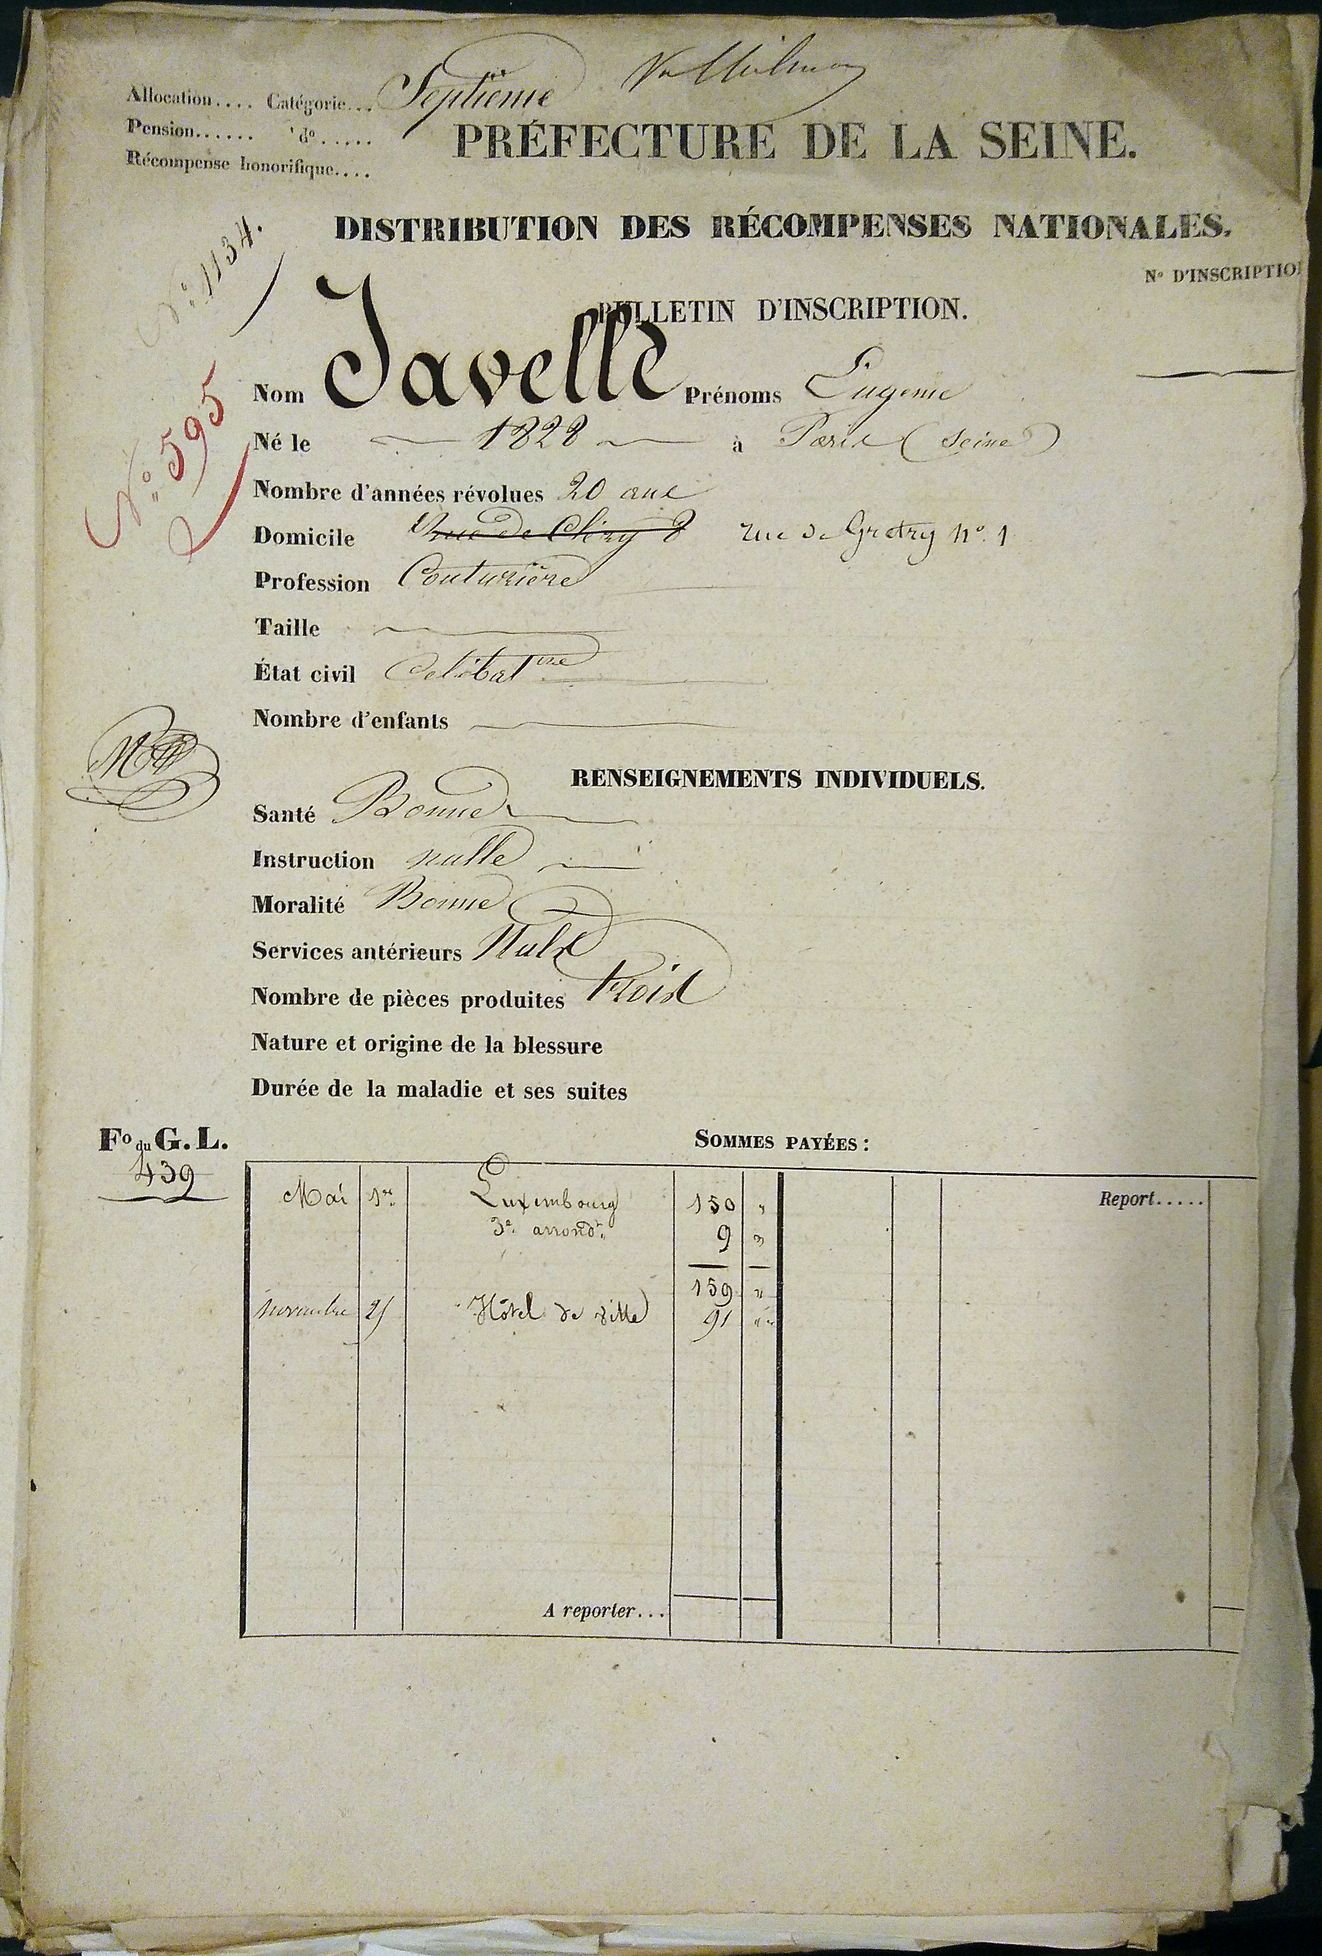 Allocation.... Catégorie... Septième
Pension...... do.....
Récompense honorifique....
PRÉFECTURE DE LA SEINE.
DISTRIBUTION DES RÉCOMPENSES NATIONALES.
No 1134.
No D'INSCRIPTIO
BULLETIN D'INSCRIPTION.
No 595
Nom Javelle Prénoms Eugenie
Né le 1828 à Paris (Seine)
Nombre d'années révolues 20 ans
Domicile Rue de Cléry 8 rue de Gretry No. 1
Profession Couturière
Taille
État civil Célibatre
Nombre d'enfants
RENSEIGNEMENTS INDIVIDUELS.
Santé Bonne
Instruction nulle
Moralité Bonne
Services antérieurs Nuls
Nombre de pièces produites trois
Nature et origine de la blessure
Durée de la maladie et ses suites
Fo du G. L.
439
SOMMES PAYÉES:
Mai 1er Luxembourg 150 " Report.....
3e arrondt. 9 "
159 "
novembre 25 Hôtel de ville 91 "
A reporter...